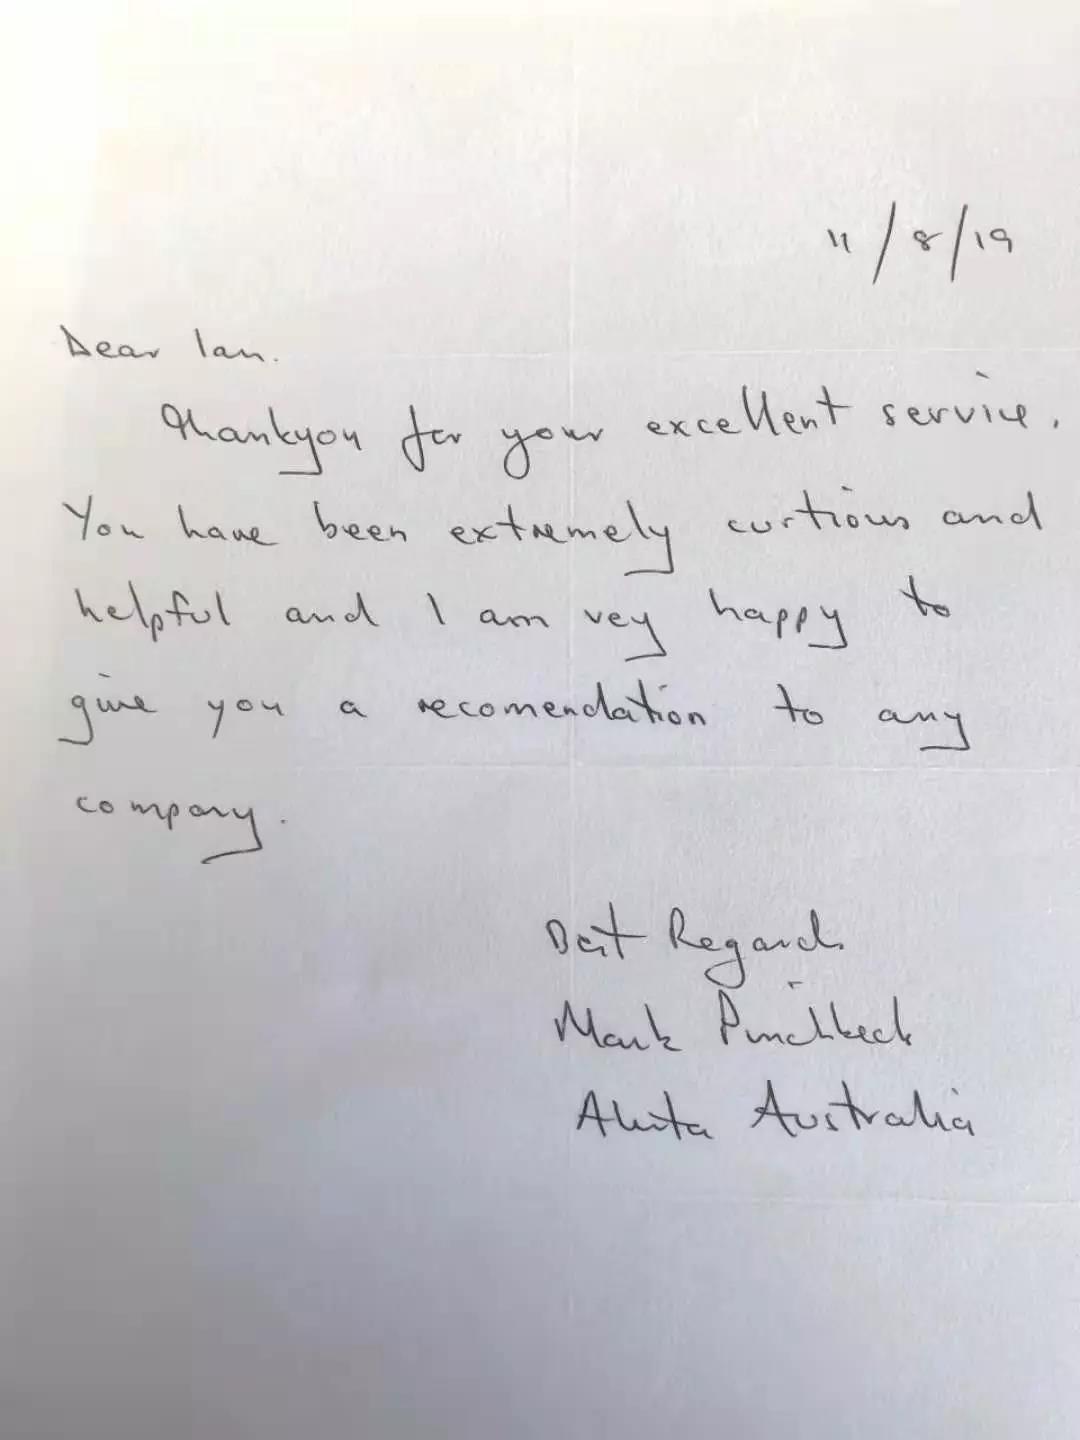 11/8/19
Dear Ian.
Thankyou for your excellent service.
You have been extremely curtious and
helpful and I am vey happy to
give you a recomendation to any
company.
Best Regards
Mark Pinchbeck
Australia